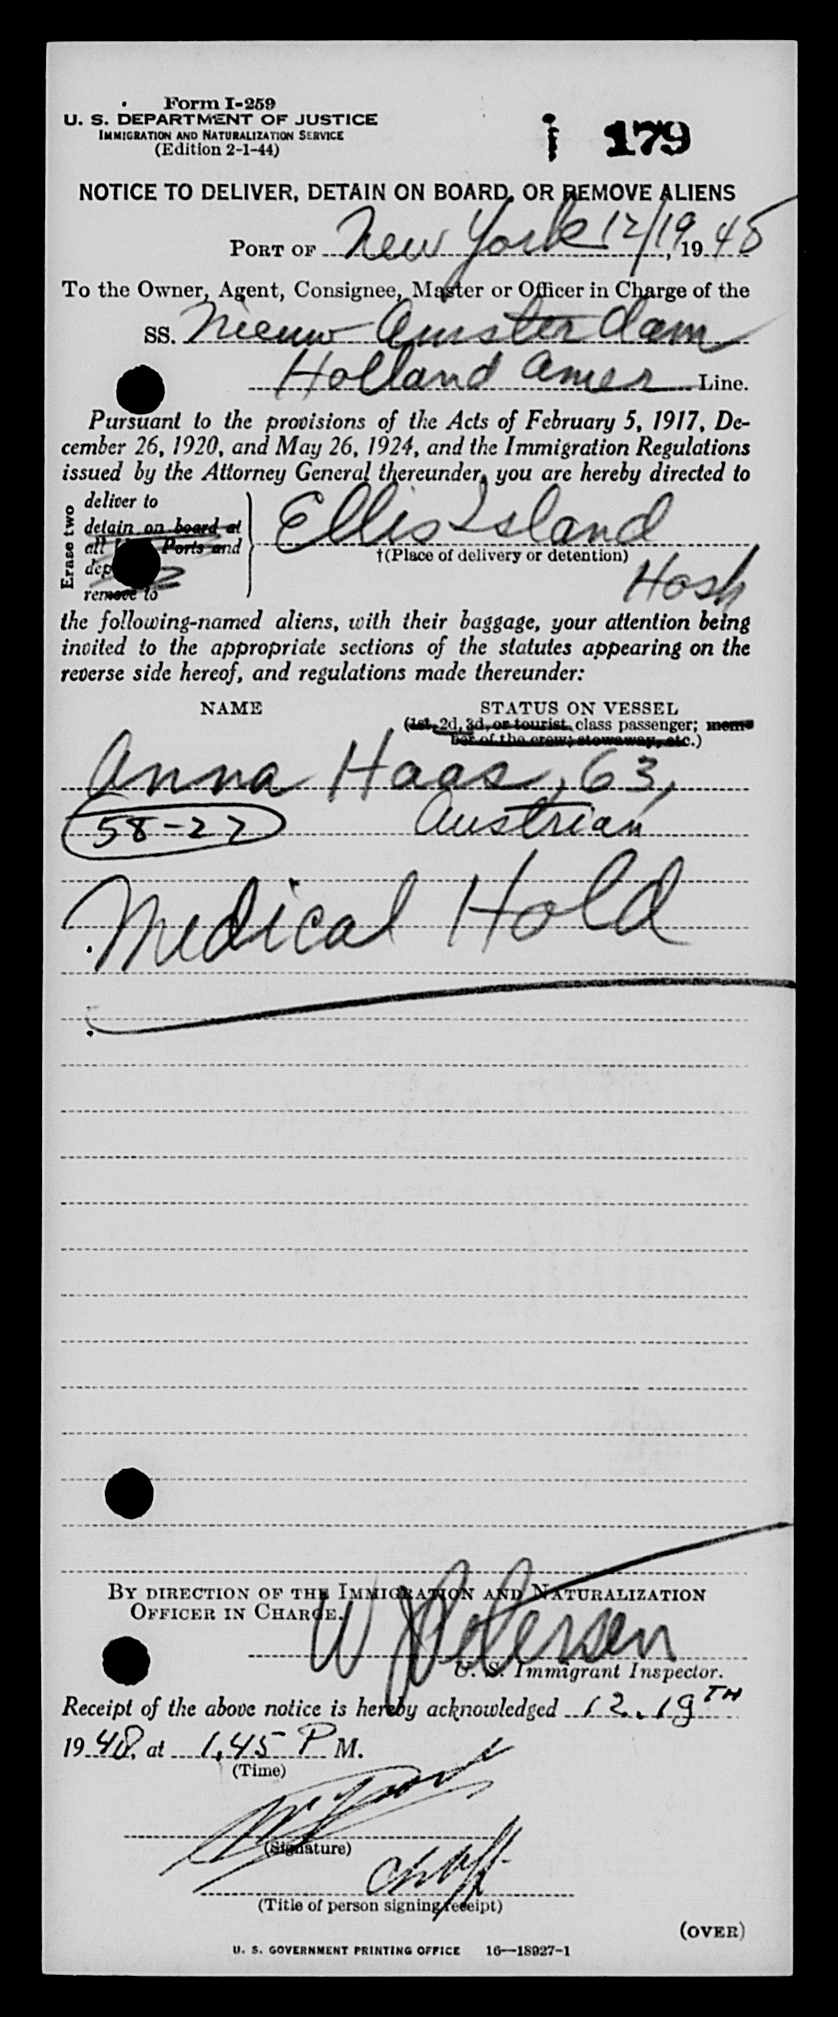 Form I-259
U. S. DEPARTMENT OF JUSTICE
IMMIGRATION AND NATURALIZATION SERVICE
(Edition 2-1-44)
179
NOTICE TO DELIVER, DETAIN ON BOARD, OR REMOVE ALIENS
PORT OF New York 12/19, 1948
To the Owner, Agent, Consignee, Master or Officer in Charge of the
SS. Nieuw Amsterdam
Holland Amer Line.
Pursuant to the provisions of the Acts of February 5, 1917, De-
cember 26, 1920, and May 26, 1924, and the Immigration Regulations
issued by the Attorney General thereunder, you are hereby directed to
Erase two
deliver to
detain on board at
all Ports and
remove to
Ellis Island
†(Place of delivery or detention)
Hosp
the following-named aliens, with their baggage, your attention being
invited to the appropriate sections of the statutes appearing on the
reverse side hereof, and regulations made thereunder:
NAME STATUS ON VESSEL
(1st, 2d, 3d, or tourist class passenger; mem-
ber of the crew; stowaway, etc.)
Anna Haas, 63,
58-22 Austrian
Medical Hold
BY DIRECTION OF THE IMMIGRATION AND NATURALIZATION
OFFICER IN CHARGE.
W J Petersen
U. S. Immigrant Inspector.
Receipt of the above notice is hereby acknowledged 12.19TH
1948, at 1,45 P M.
(Time)
(Signature)
(Title of person signing receipt)
(OVER)
U. S. GOVERNMENT PRINTING OFFICE 16—18927-1